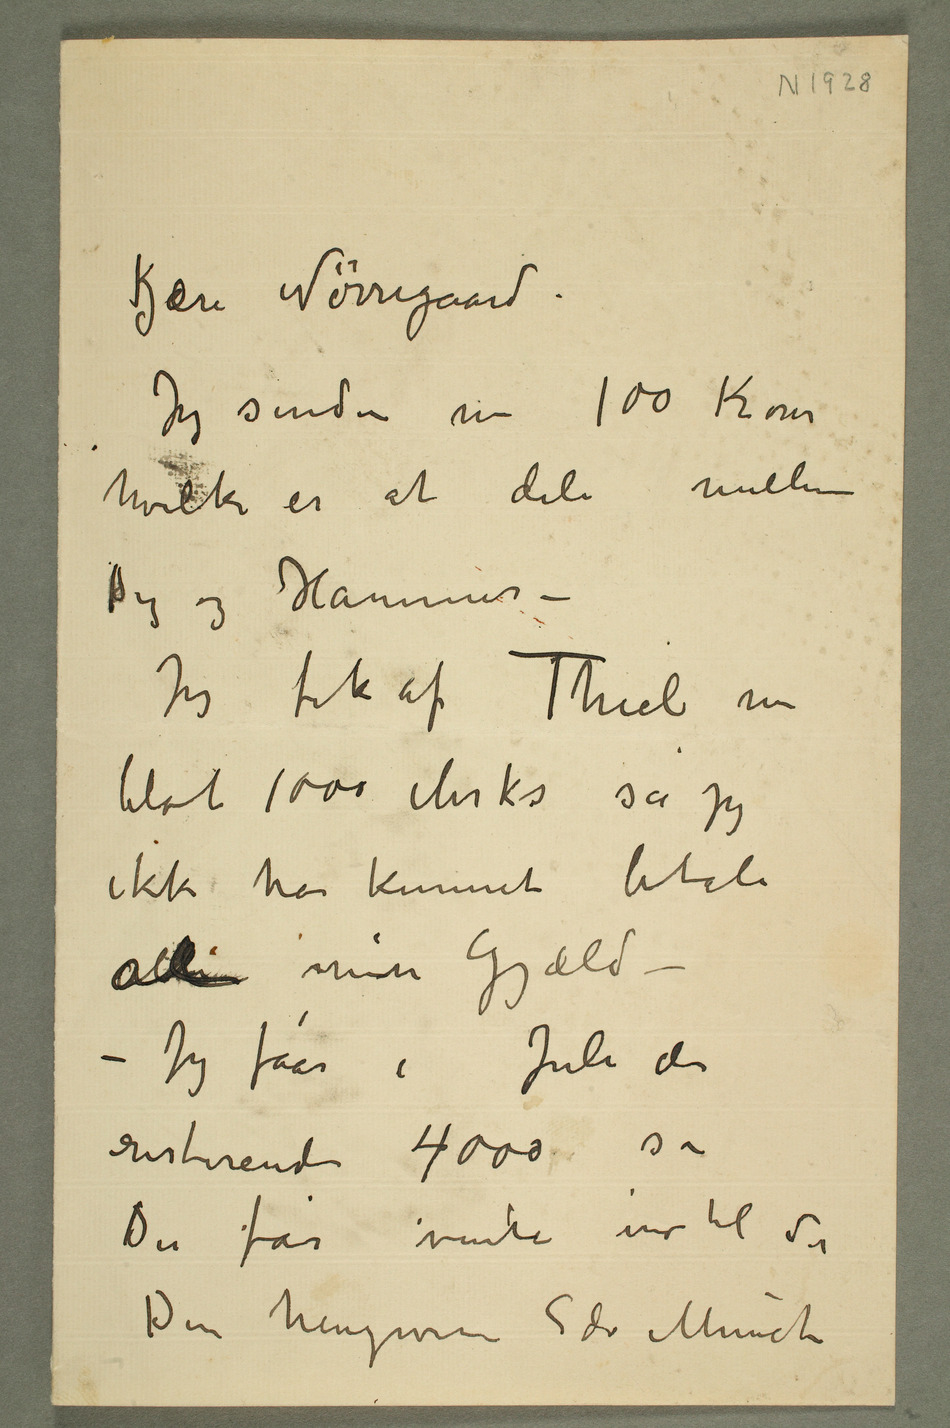 N 1928
Kjære Nörregaard.
Jeg sender nu 100 Kroner
hvilke er at dele mellem
Dig og Hammer –
Jeg fik af Thiel nu
blot 1000 så jeg
ikke har kunnet betale
alle min Gjæld –
– Jeg fåar i Juli de
resterende 4000 så
Du får vente til
Din hengivne Edv Munch